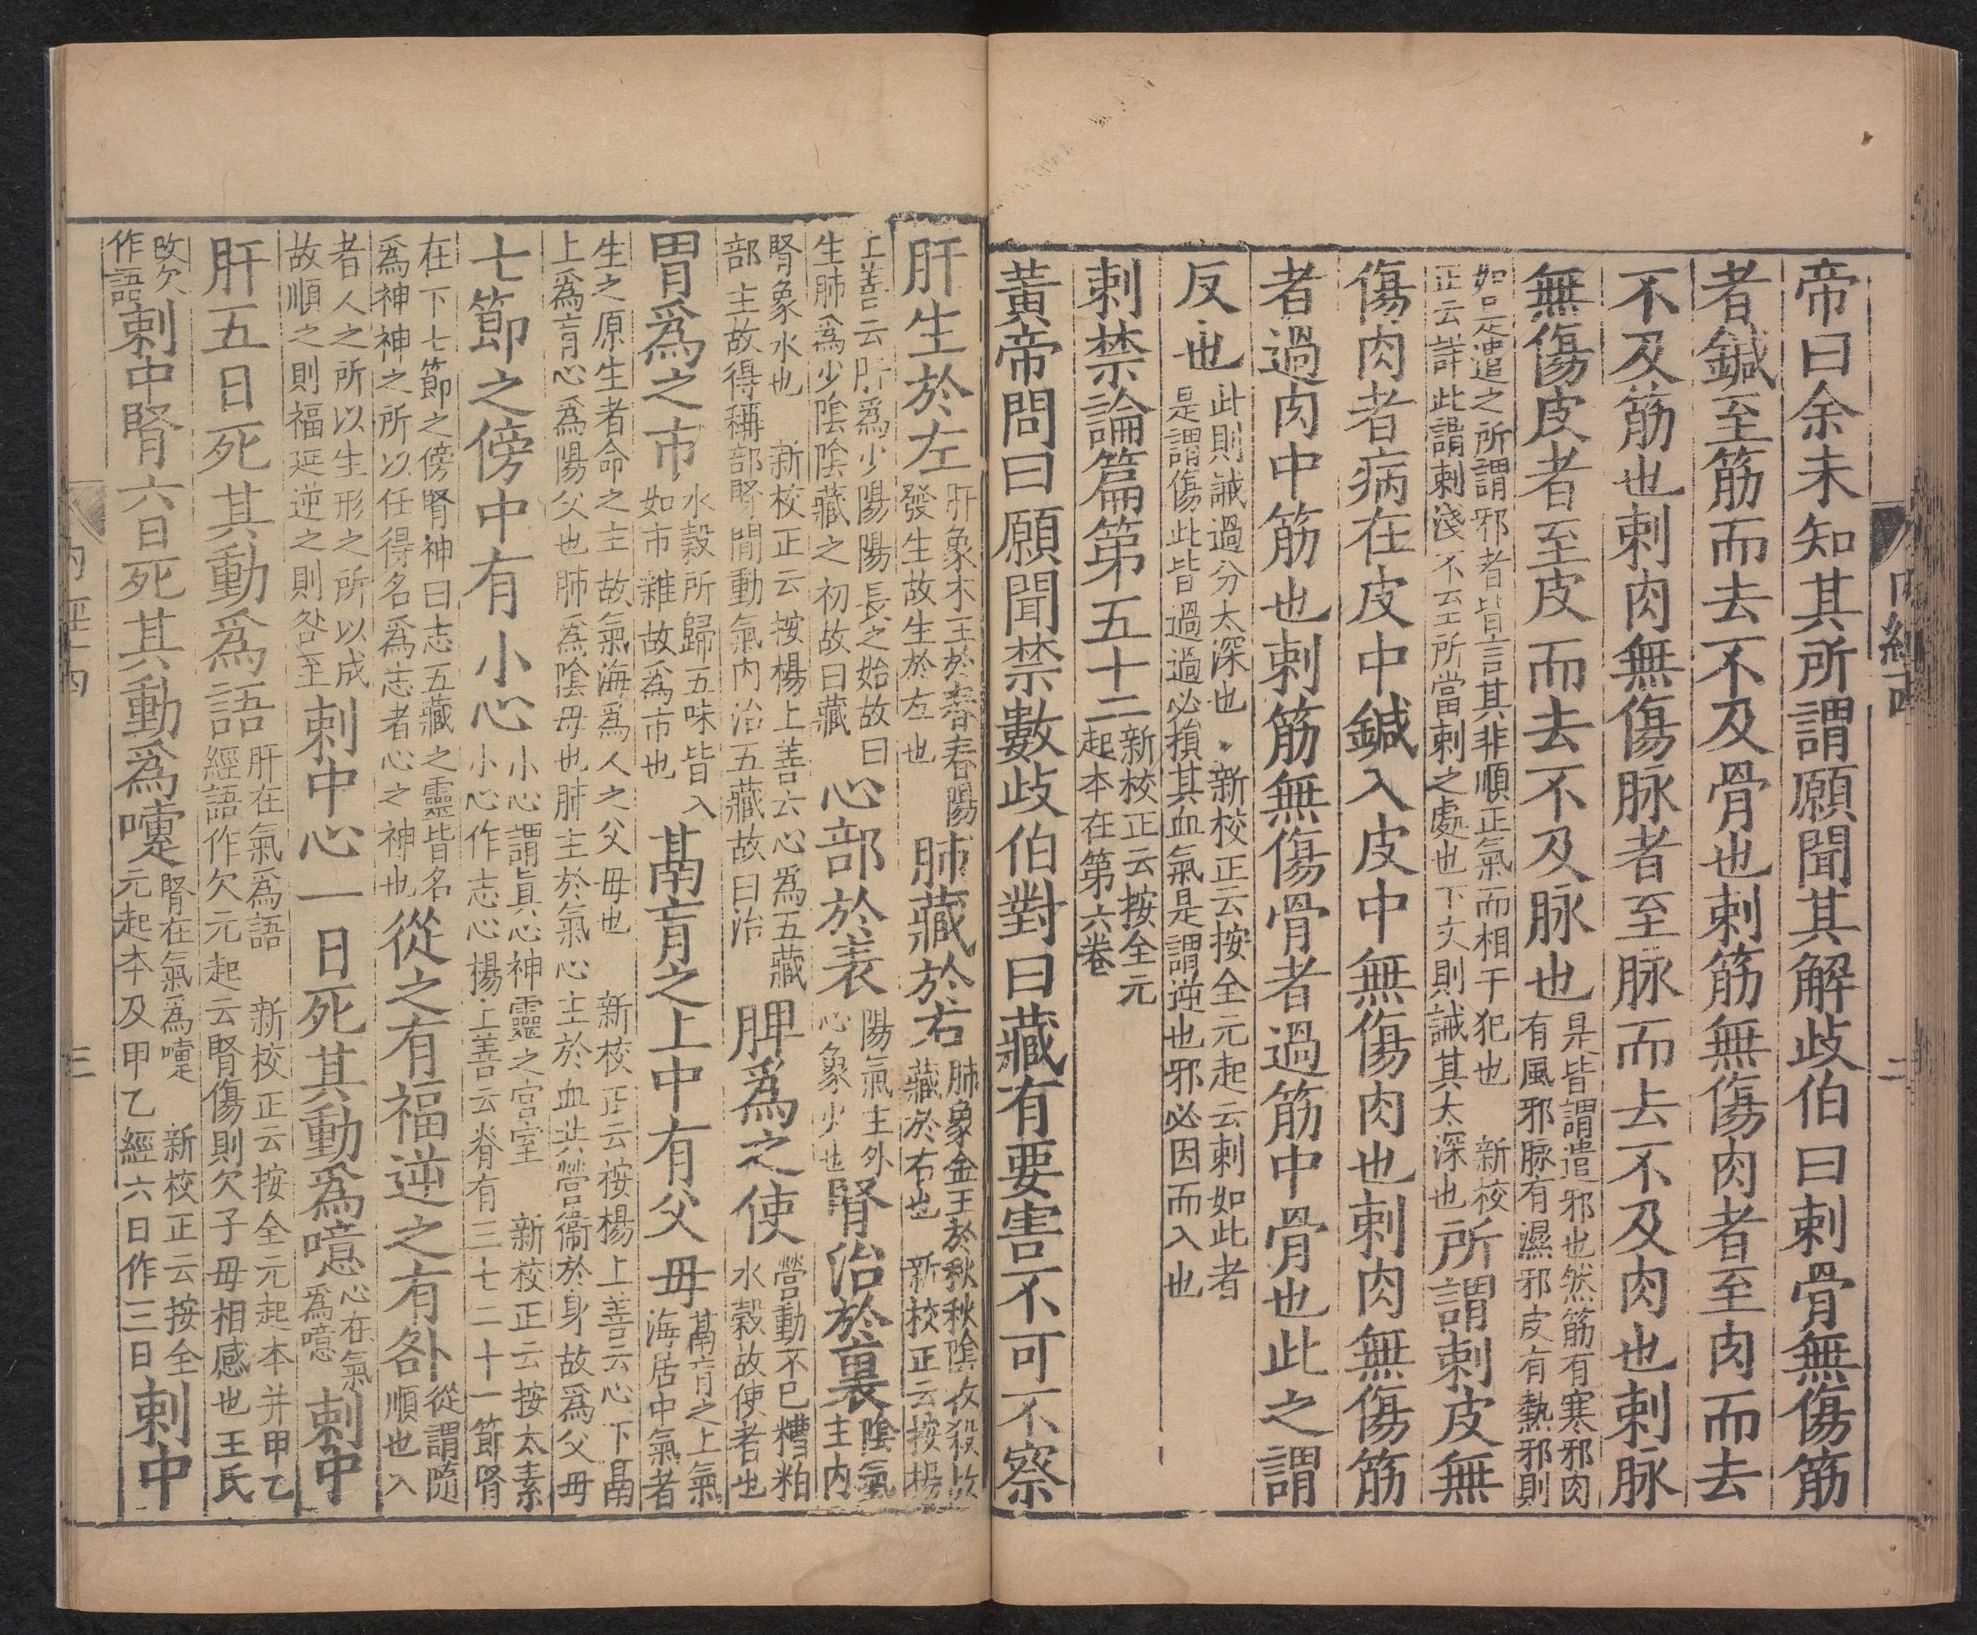 帝曰余未知其所謂願聞其解歧伯曰刺骨無傷筋
者鍼至筋而去不及骨也刺筋無傷肉者至肉而去
不及筋也刺肉無傷脉者至脉而去不及肉也刺脉
無傷皮者至皮而去不及脉也是皆謂遣邪也然筋有寒邪肉
有風邪脉有濕邪皮有熱邪則
如是遣之所謂邪者皆言其非順正氣而相干犯也 新校
正云詳此謂刺淺不至所當刺之處也下文則誡其太深也所謂刺皮無
傷肉者病在皮中鍼入皮中無傷肉也刺肉無傷筋
者過肉中筋也刺筋無傷骨者過筋中骨也此之謂
反也此則誡過分太深也 新校正云按全元起云刺如此者
是謂傷此皆過過必損其血氣是謂逆也邪必因而入也
刺禁論篇第五十二新校正云按全元
起本在第六卷
黃帝問曰願聞禁數歧伯對曰藏有要害不可不察
內經
二
肝生於左肝象木王於春春陽
發生故生於左也肺藏於右肺象金王於秋秋陰收殺故
藏於右也 新校正云按楊
上善云肝爲少陽陽長之始故曰
生肺爲少陰陰藏之初故曰藏心部於表陽氣主外
心象火也腎治於裏陰氣
主內
腎象水也 新校正云按楊上善云心爲五藏
部主故得稱部腎間動氣內治五藏故曰治脾爲之使營動不已糟粕
水穀故使者也
胃爲之市水穀所歸五味皆入
如市雜故爲市也鬲肓之上中有父母鬲肓之上氣
海居中氣者
生之原生者命之主故氣海爲人之父母也 新校正云按楊上善云心下鬲
上爲肓心爲陽父也肺爲陰母也肺主於氣心主於血共營衞於身故爲父母
七節之傍中有小心小心謂眞心神靈之宮室 新校正云按太素
小心作志心楊上善云脊有三七二十一節腎
在下七節之傍腎神曰志五藏之靈皆名
爲神神之所以任得名爲志者心之神也從之有福逆之有咎從謂隨
順也入
者人之所以生形之所以成
故順之則福延逆之則咎至刺中心一日死其動爲噫心在氣
爲噫刺中
肝五日死其動爲語肝在氣爲語 新校正云按全元起本并甲乙
經語作欠元起云腎傷則欠子母相感也王氏
改欠
作語刺中腎六日死其動爲嚏腎在氣爲嚏 新校正云按全
元起本及甲乙經六日作三日刺中
內經四
三